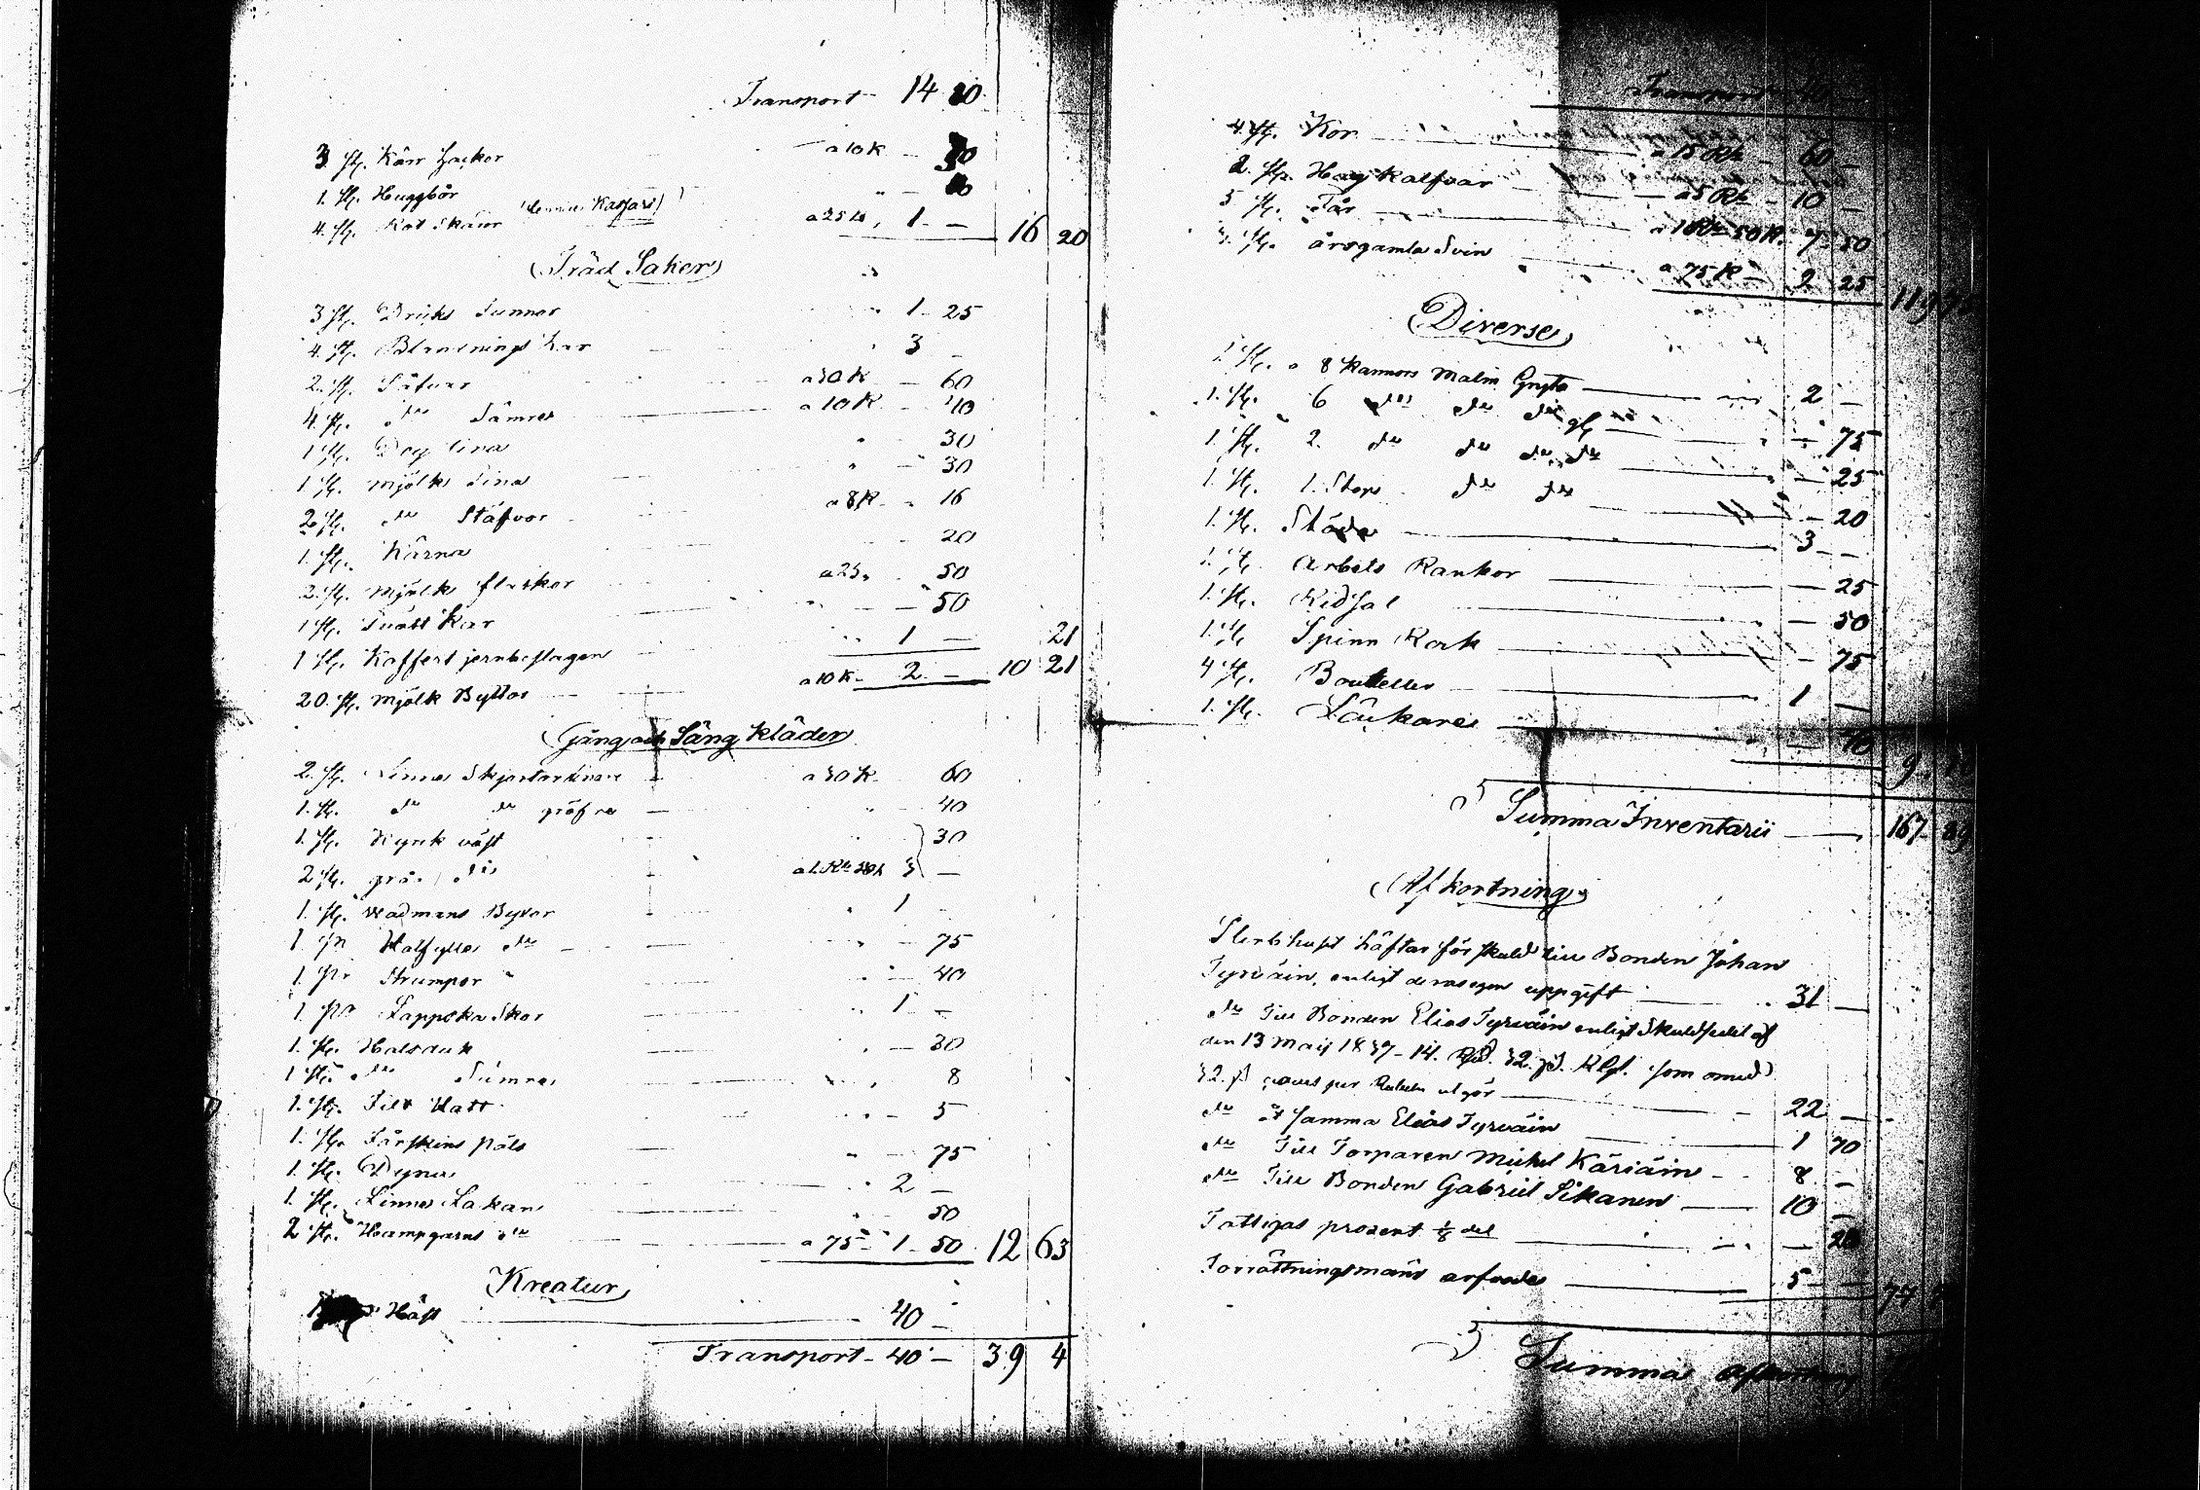 Transport 14 80
3 st. Kärr Hackor a 10 K 30
1. st. Huggbår 10
4. st. Rot Skäror a 25 1 — 16 20
Träd Saker
3 st. Dricks Tunnor 1 25
4. st. Kar 3 —
2. st. Såfvar a 30 K 60
4. st. do Sämre a 10 K 40
1 st. Deg tina 30
1 st. Mjölks Tina 30
2 st. do Stäfvor a 8 K 16
1. st. Kärna 20
2. st. Mjölk flaskor a 25 50
1 st. Tvätt Kar 50
1 st. Koffert jernbeslagen 1 — 21
20. st. Mjölk Byttor a 10 K 2 — 10 21
Gång och Säng Kläder
2. st. Linnes Skjortor a 30 K 60
1. st. do do gröfre 40
1. st. Kyrk väst 30
2 st. grå do 3 —
1. st. Vadmans Byxor 1 —
1 pr Halfylle do 75
1. pr Strumpor 40
1. pr Lappska Skor 1 —
1. st. Halsduk 30
1 st. do Sämre 8
1. st. Filt Hatt 5
1. st. Fårskins päls 75
1. st. Dyna 2 —
1. st. Linnes Lakan 50
2 st. Hampgarns do a 75 1 50 12 63
Kreatur
Häst 40 —
Transport 40 — 39 4
Transport 40 —
4. st. Kor a 15 Rb 60 —
2. st. Kalfvar a 5 Rb 10 —
5 st. Får a 1 Rb 50 K. 7 50
3. st. årsgamla Svin a 75 K 2 25 119 75
Diverse
1 st. a 8 Kannors Malm Gryta 2 —
1. st. 6 do do do 75
1. st. 2. do do do do 25
1. st. 1. Stop do do 20
1. st. Städ 3 —
1. st. Arbets Rankor 25
1. st. Ridsal 50
1. st. Spinn Rock 75
4 st. Bouteller 1 —
1. st.
Summa Inventarii 167 89
Afkortning
Sterbhuset häftar för skuld till Bonden Johan
Tyrväin, enligt deras egen uppgift 31 —
do Till Bonden Elias Tyrväin enligt Skuldsedel af
den 13 Maij 1837 14. Rd. 32. sk. Rgs. som
32. sk per Rubeln utgör 22 —
do åt samma Elias Tyrväin 1 70
do Till Torparen Michel Käriäin 8 —
do Till Bonden Gabriel Sikanen 10 —
Fattigas procent 1/8 del
Förrättningsmans arfvode 5 —
Summa